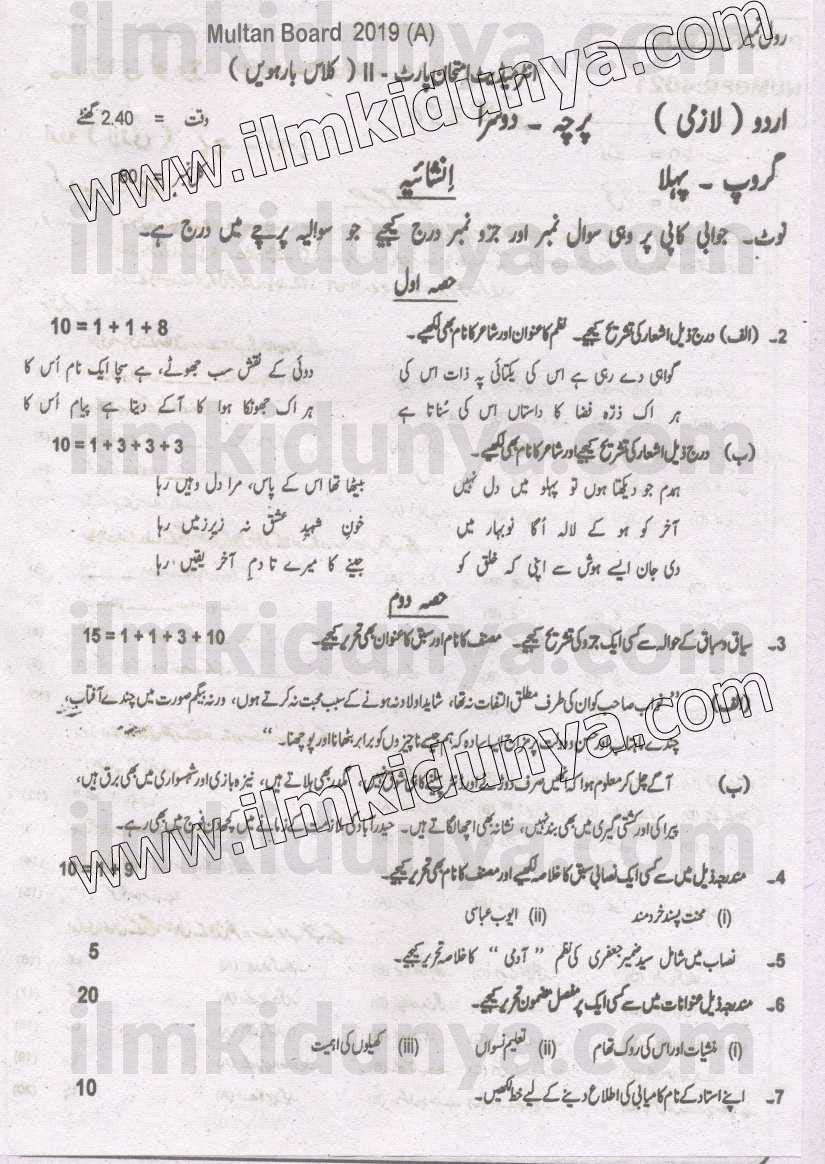 Multan Board 2019 (A)
رول نمبر
انٹرمیڈیٹ امتحان پارٹ - II ( کلاس بارہویں )
اردو ( لازمی ) پرچہ ۔ دوسرا وقت = 2.40 گھنٹے
گروپ ۔ پہلا اِنشائیہ = 80
نوٹ۔ جوابی کاپی پر وہی سوال نمبر اور جزو نمبر درج کیجیے جو سوالیہ پرچے میں درج ہے۔
حصہ اول
2۔ (الف) درج ذیل اشعار کی تشریح کیجیے۔ نظم کا عنوان اور شاعر کا نام بھی لکھیے۔ 10 = 1 + 1 + 8
گواہی دے رہی ہے اس کی یکتائی پہ ذات اس کی دوئی کے نقش سب جھوٹے، ہے سچا ایک نام اُس کا
ہر اک ذرّہ فضا کا داستاں اس کی سُناتا ہے ہر اک جھونکا ہوا کا آکے دیتا ہے پیام اُس کا
(ب) درج ذیل اشعار کی تشریح کیجیے اور شاعر کا نام بھی لکھیے۔ 10 = 1 + 3 + 3 + 3
ہمدم جو دیکھتا ہوں تو پہلو میں دل نہیں بیٹھا تھا اس کے پاس، مرا دل وہیں رہا
آخر کو ہو کے لالہ اُگا نوبہار میں خونِ شہیدِ عشق نہ زیرِ زمیں رہا
دی جان ایسے ہوش سے اپنی کہ خلق کو جینے کا میرے تا دمِ آخر یقیں رہا
حصہ دوم
3۔ سیاق و سباق کے حوالہ سے کسی ایک جزو کی تشریح کیجیے۔ مصنف کا نام اور سبق کا عنوان بھی تحریر کیجیے۔ 15 = 1 + 1 + 3 + 10
(الف) '' نواب صاحب کو ان کی طرف مطلق التفات نہ تھا، شاید اولاد نہ ہونے کے سبب محبت نہ کرتے ہوں، ورنہ بیگم صورت میں چندے آفتاب،
چندے ماہتاب اور حسن و دولت پر مزاج ایسا سادہ کہ ہم جیسے ناچیزوں کو برابر بٹھانا اور پوچھنا۔ ''
(ب) آگے چل کر معلوم ہوا کہ انھیں صرف دوڑنے اور ڈنٹر پیلنے کا ہی شوق نہیں، مگدر بھی ہلاتے ہیں، نیزہ بازی اور شہسواری میں بھی برق ہیں،
پیراکی اور کشتی گیری میں بھی بند نہیں، نشانہ بھی اچھا لگاتے ہیں۔ حیدرآباد کی ملازمت کے زمانے میں کچھ دن فوج میں بھی رہے۔
4۔ مندرجہ ذیل میں سے کسی ایک نصابی سبق کا خلاصہ لکھیے اور مصنف کا نام بھی تحریر کیجیے۔ 10 = 1 + 9
(i) محنت پسند خردمند (ii) ایوب عباسی
5۔ نصاب میں شامل سید ضمیر جعفری کی نظم '' آدمی '' کا خلاصہ تحریر کیجیے۔ 5
6۔ مندرجہ ذیل عنوانات میں سے کسی ایک پر مفصل مضمون تحریر کیجیے۔ 20
(i) منشیات اور اس کی روک تھام (ii) تعلیم نسواں (iii) کھیلوں کی اہمیت
7۔ اپنے استاد کے نام کامیابی کی اطلاع دینے کے لیے خط لکھیں۔ 10
www.ilmkidunya.com
www.ilmkidunya.com
ilmkidunya.com
ilmkidunya.com
ilmkidunya.com
ilmkidunya.com
ilmkidunya.com
ilmkidunya.com